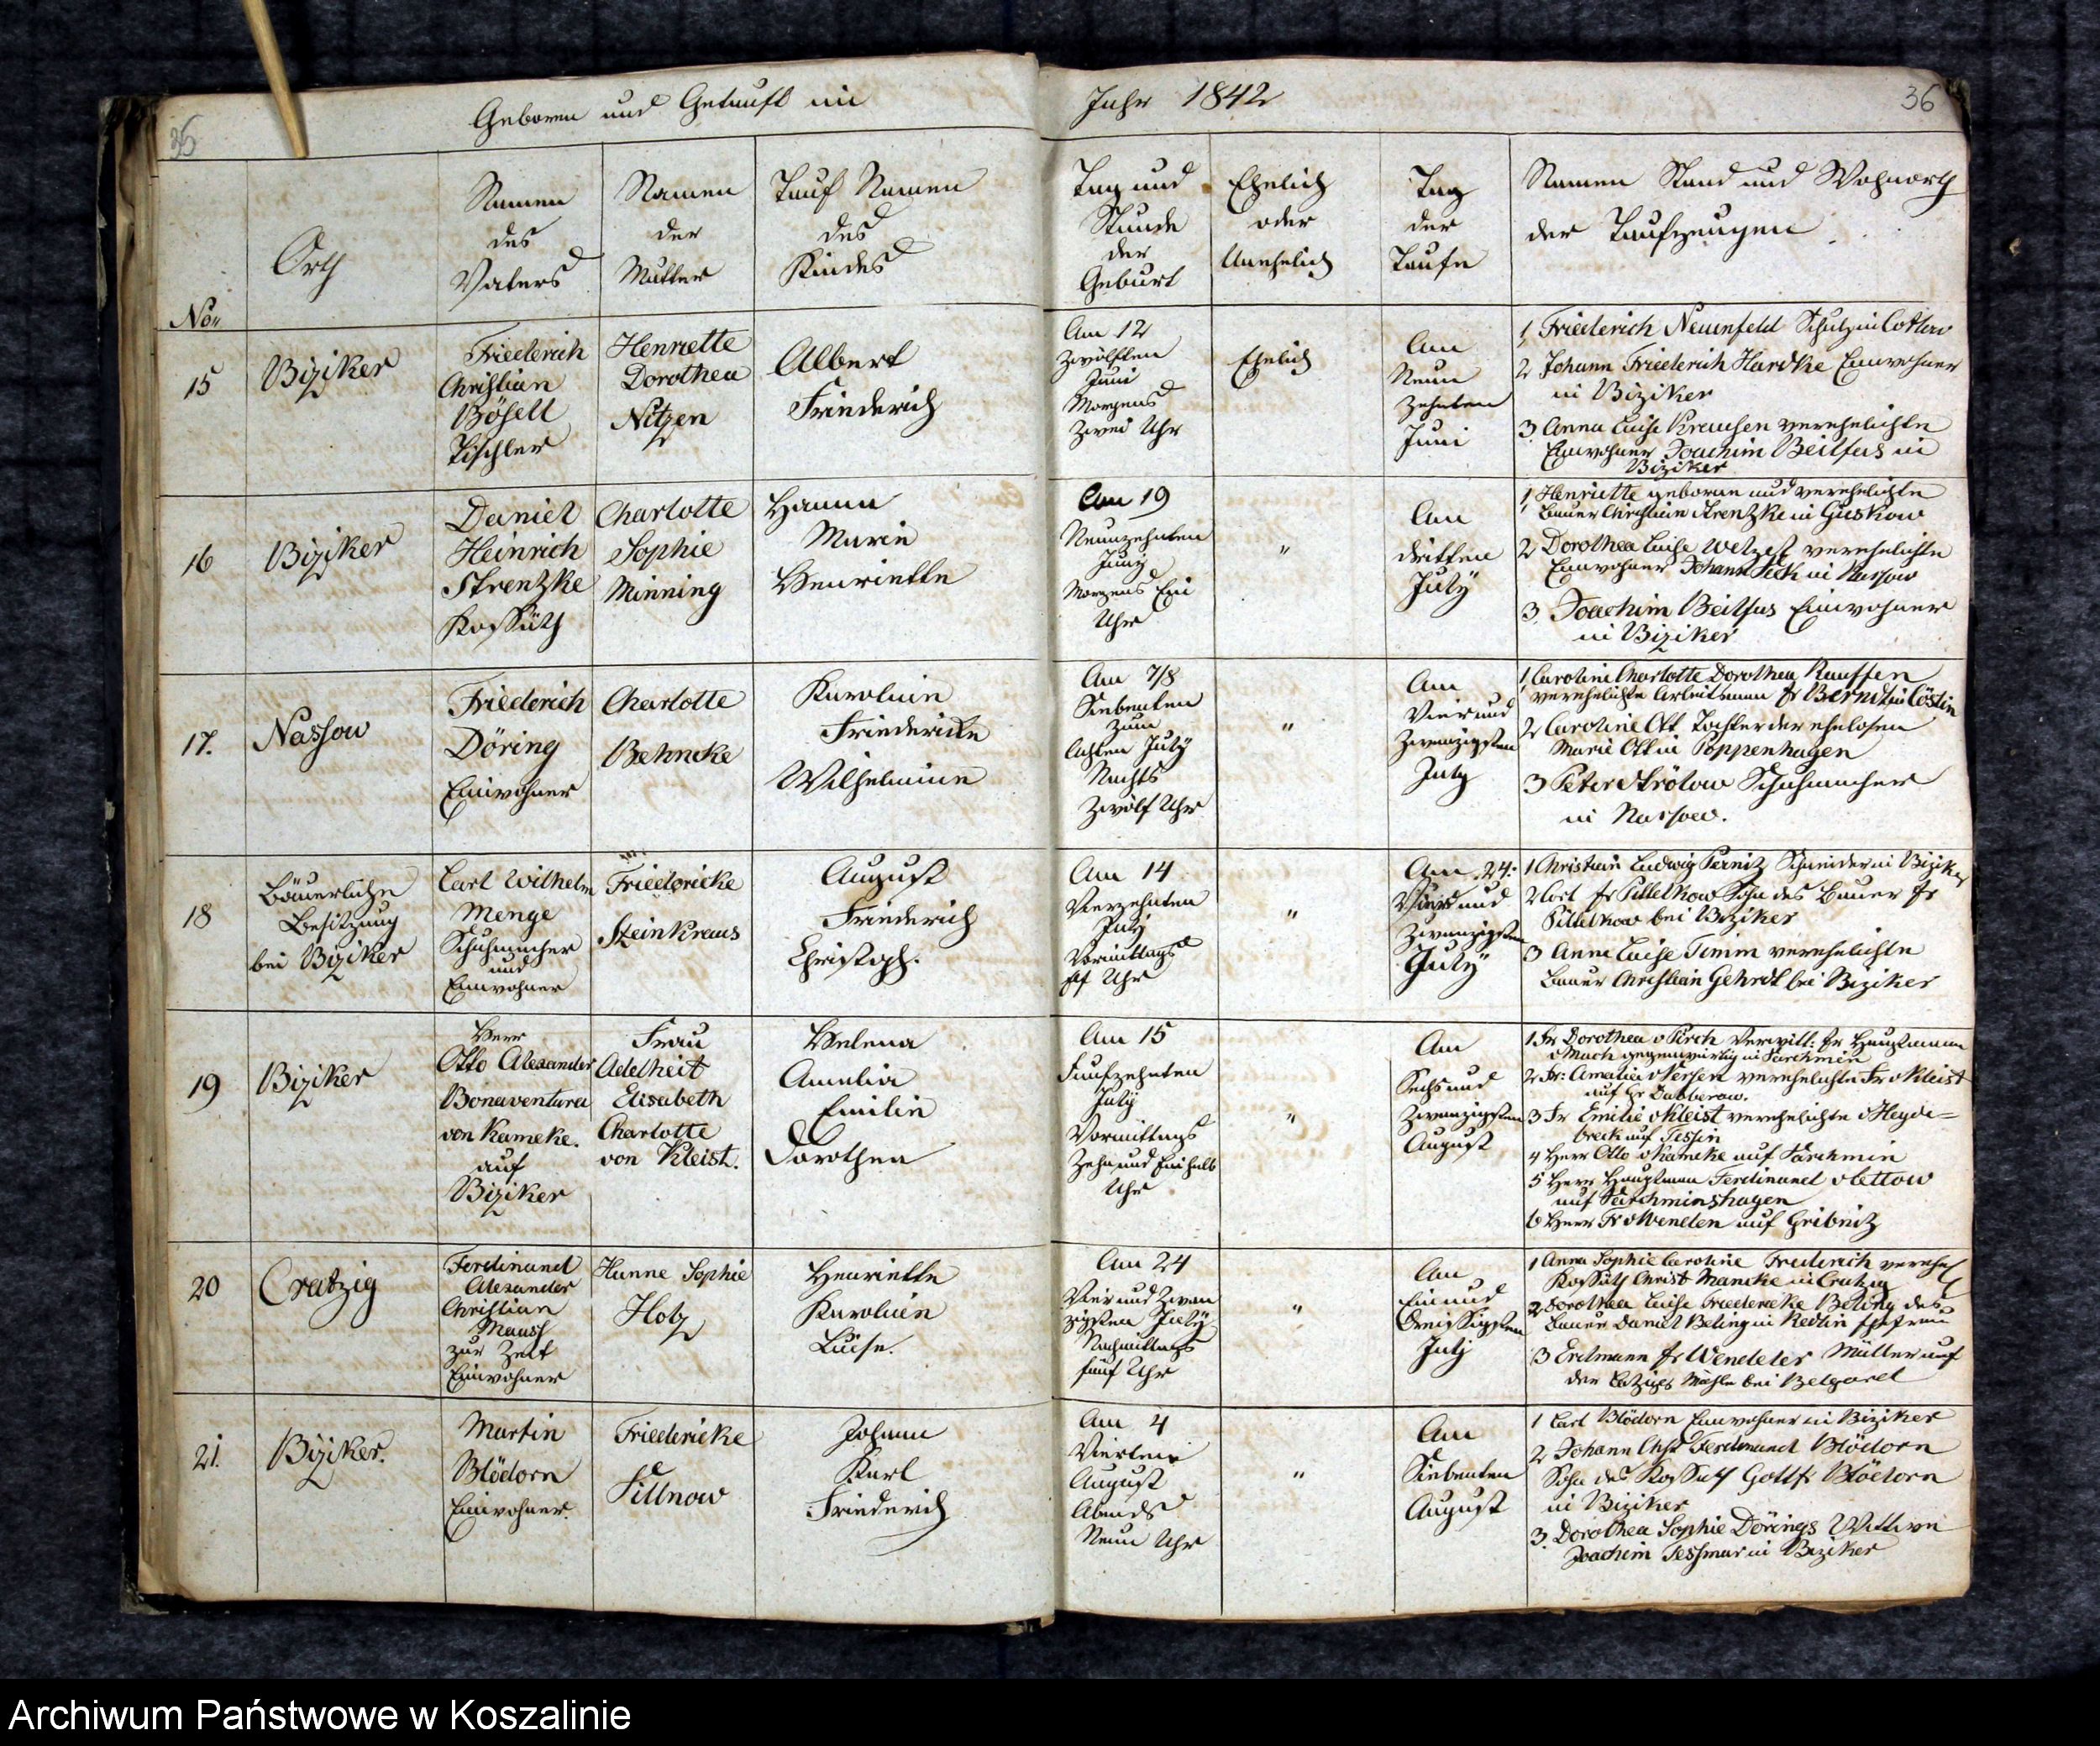 Geboren und Getauft im Jahr 1842
36
36
No.
Orth
Namen
des
Vaters
Namen
der
Mutter
Tauf Namen
des
Kindes
Tag und
Stunde
der
Geburt
Ehelich
oder
Unehelich
Tag
der
Taufe
Namen Stand und Wohnorth
der Taufzeugen
15
Biziker
Friederich
Christian
Böhell
Tischler
Henriette
Dorothea
Nitzen
Albert
Friederich
Am 12
Zwölften
Juni
Morgens
Zwei Uhr
Ehelich
Am
Neun
Zehnten
Juni
1, Friederich Neuenfeld Schulz in Cottow
2 Johann Friederich Hardtke Einwohner
in Biziker
3 Anna Luise Krauhsen verehelichte
Einwohner Joachim Beilfus in
Biziker
16
Biziker
Daniel
Heinrich
Strentzke
Kossäth
Charlotte
Sophie
Minning
Hanna
Marie
Henriette
Am 19
Neunzehnten
Juny
Morgens Ein
Uhr
"
Am
dritten
July
1, Henriette geborne und verehelichte
Bauer Christian Strentzke in Guskow
2 Dorothea Luise verehelichte
Einwohner Johann in Nassow
3, Joachim Beilfus Einwohner
in Biziker
17.
Nassow
Friederich
Döring
Einwohner
Charlotte
Behncke
Karoline
Friedericke
Wilhelmine
Am 7/8
Siebenten
zum
achten July
Nachts
Zwölf Uhr
"
Am
Vier und
Zwanzigsten
July
1, Caroline Charlotte Dorothea Rauffen
verehelichte Arbeitsmann Fr Berndt in Cöslin
2 Caroline Ott Tochter der ehelosen
Marie Ott in Poppenhagen
3 Peter Strölow Schuhmacher
in Nassow.
18
Bäuerliche
Besitzung
bei Biziker
Carl Wilhelm
Menge
Schuhmacher
und
Einwohner
Friedericke
Steinkraus
August
Friederich
Christoph.
Am 14
Vierzehnten
July
Vormittags
elf Uhr
"
Am 24.
Vier und
Zwanzigsten
July
1 Christian Ludwig Pernitz Schneider in Biziker
2 Carl Fr Pittelkow Sohn des Bauer Fr
Pittelkow bei Biziker
3 Anne Luise Timm verehelichte
Bauer Christian Gehrdt bei Biziker
19
Biziker
Herr
Otto Alexander
Bonaventura
von Kameke.
auf
Biziker
Frau
Adelheit
Elisabeth
Charlotte
von Kleist.
Helena
Amalia
Emilie
Dorothea
Am 15
Funfzehnten
July
Vormittags
Zehn und Einhalb
Uhr
"
Am
Sechs und
Zwanzigsten
August
1 Fr Dorothea v Pirch Verwitt: Fr Hauptmann
v Mach gegenwärtig in Parchmin
2 Fr: Amalia v Versen verehelichte Fr v Kleist
auf Gr Dubberow.
3 Fr Emilie v Kleist verehelichte v Heyde=
breck auf Tessin
4 Herr Otto v Kameke auf Parchmin
5 Herr Hauptman Ferdinand v Lettow
auf Parchminshagen
6 Herr Fr v Wenden auf Gribnitz
20
Cratzig
Ferdinand
Alexander
Christian
Mauss
zur Zeit
Einwohner
Hanne Sophie
Holz
Henriette
Karoline
Luise.
Am 24
Vier und Zwan
zigsten July
Nachmittags
fünf Uhr
"
Am
Ein und
Dreissigsten
July
1 Anna Sophie Caroline Friederich verehel
Kossäth Christ Mancke in Cratzig
2 Dorothea Luise Friedericke Beling des
Bauer Daniel Beling in Redlin Ehefrau
3 Erdmann Fr Wendeler Müller auf
der Mühle bei Belgard
21.
Biziker.
Martin
Blödorn
Einwohner.
Friedericke
Pillnow
Johann
Karl
Friederich
Am 4
Vierten
August
Abends
Neun Uhr
"
Am
Siebenten
August
1 Carl Blödorn Einwohner in Biziker
2 Johann Chst Ferdinand Blödorn
Sohn des Kossath Gottfr Blödorn
in Biziker
3. Dorothea Sophie Dörings Wittwe
Joachim Tessmar in Biziker
Archiwum Państwowe w Koszalinie